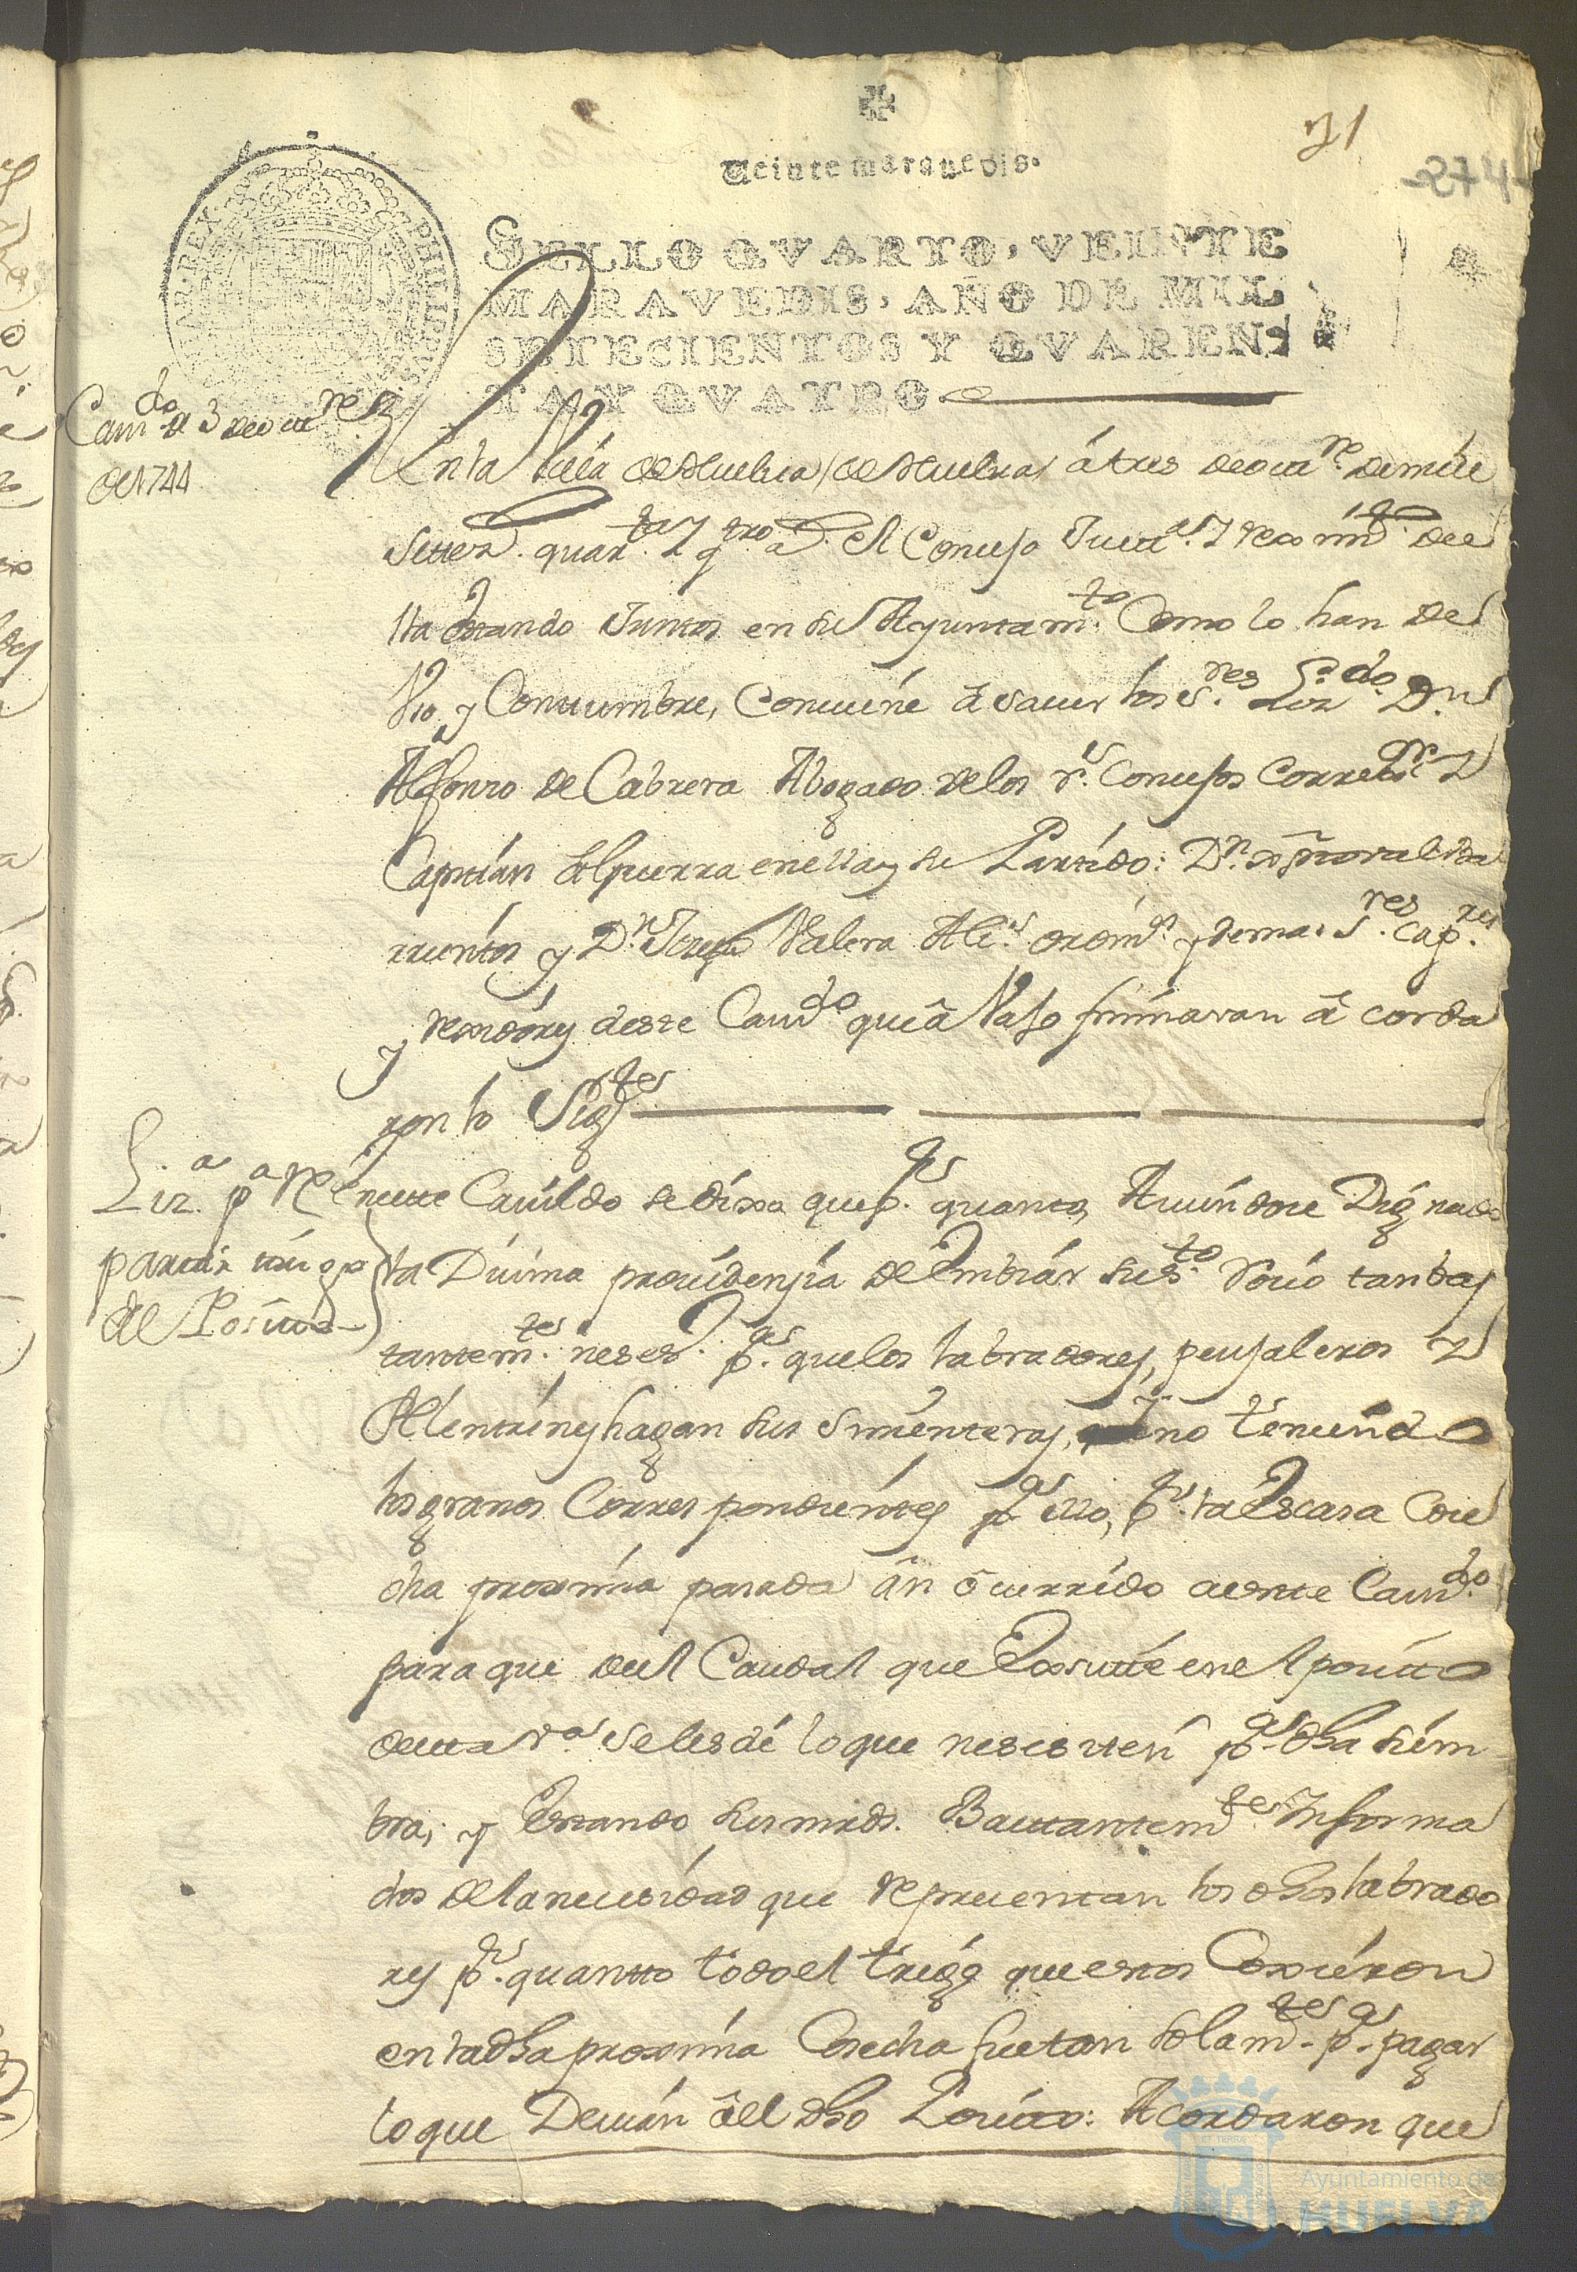 71
274
Veinte maravedis.
SELLO QVARTO, VEINTE
MARAVEDIS, AÑO DE MIL
SETECIENTOS Y QVAREN-
TA Y QVATRO
PHILIP
REX
Cavdo. de 3 de octre
de 1744
En la Villa de Huelva (de Huelva) á tres de octre. de mill
settez. quarta. y qtro as. el Conzejo Justa. y reximto. de e
lla estando Juntos en su Ayuntamto. Como lo han de
Vso, y Constumbre, Conviene á saver los Sres. Lizdo. Dn.
Alfonso de Cabrera Abogado de los rs. Consejos Corregor. y
Capitán á Guerra en ella y su Partido: Dn.
rrientos y Dn. Joseph Valera Alcs. ordins. y demas Sres. Capres
y rexidores deste Cavdo. que á Vajo firmaran á corda
ron lo Sigte
Liza. pa. Re
partir trigo
del Posito
En este Cavildo se dixo que pr. quanto, Aviendose Dignado
la Divina providenzia de Embiár su sto. Rocio tan bas
tantemte. neses. pa. que los labradores, peujaleros y
Melentrines hagan sus Simenteras, y no teniendo
los granos Correspondientes pa ello, pr. la Escasa Cose
cha proxima pasada án ócurrido á este Cavdo.
para que de el Caudal que Existe en el posito
de esta va. Se les dé lo que nesesiten pa. dha siem
bra; y Estando sus mrds. Bastantemte. Informa
dos de la nesesidad que representan los dhos labrado
res pr. quantto todo el trigo que estos Coxieron
en la dha proxima Cosecha fue tan solamte. pa. pagar
lo que Devian á el dho Posito: Acordaron que
Ayuntamiento de
HUELVA